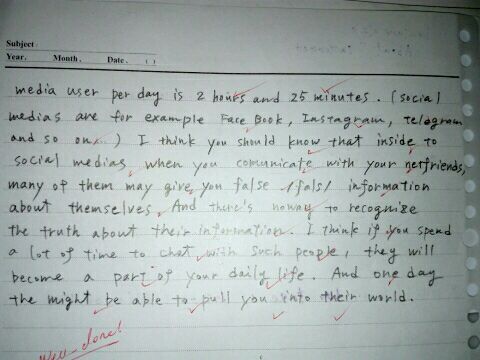 Subject:
Year. Month. Date. ( )
media user per day is 2 hours and 25 minutes. (social
medias are for example Face Book, Instagram, telegram
and so on...) I think you should know that inside to
social medias, when you comunicate with your netfriends,
many of them may give you false /fals/ information
about themselves. And there's noway to recognise
the truth about their information. I think if you spend
a lot of time to chat with such people, they will
become a part of your daily life. And one day
the might be able to pull you into their world.
well-done!